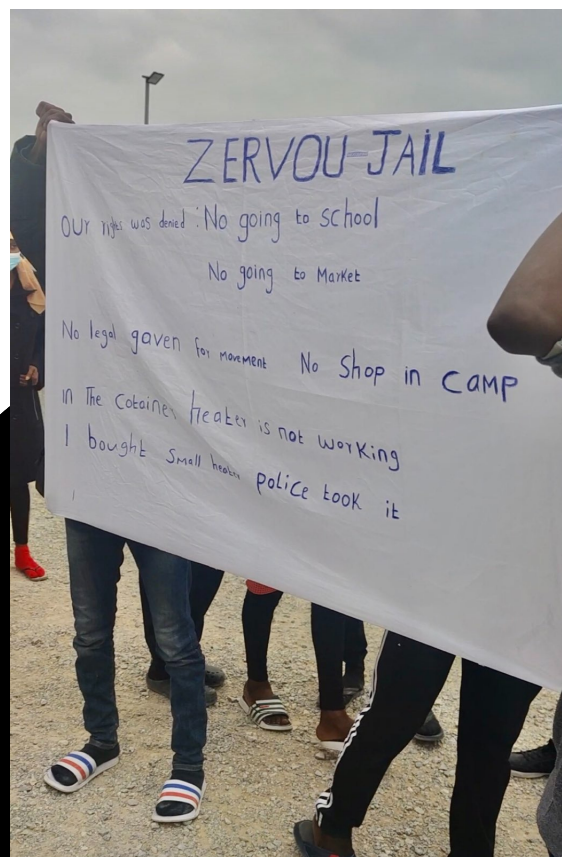 ZERVOU-JAIL
OUr rights was denied : No going to school
No going to Market
No legal gaven for movement No Shop in CAMP
in The Cotainer heater is not working
I bought Small heater police took it